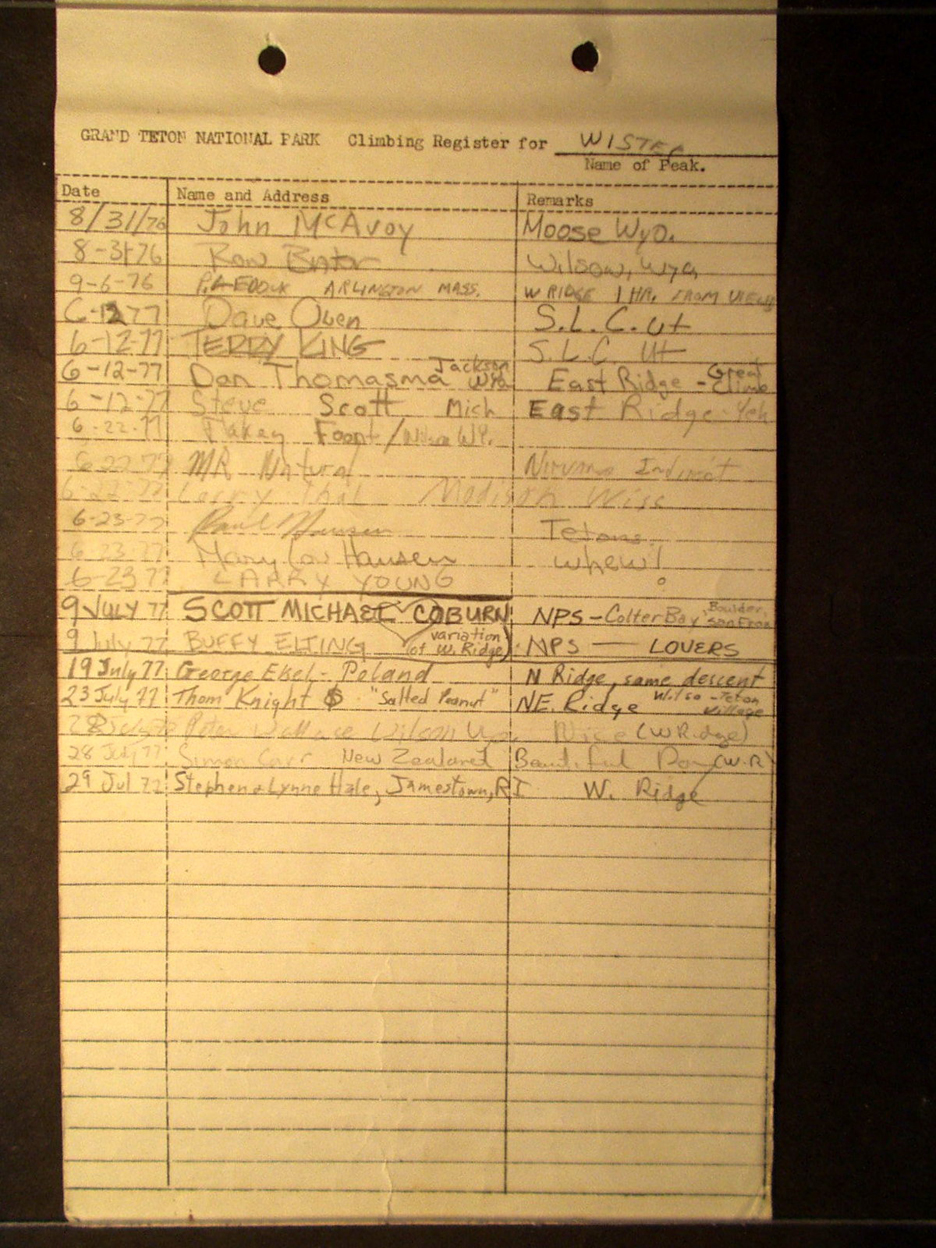 GRAND TETON NATIONAL PARK Climbing Register for WISTER
Name of Peak.
Date Name and Address Remarks
8/31/76 John McAvoy Moose Wyo.
8-31-76 Ron Wilson, Wyo
9-6-76 ARLINGTON MASS. W RIDGE 1 HR. FROM VIEW
6-12-77 Dave Owen S.L.C. Ut
6-12-77 TERRY KING S.L.C. Ut
6-12-77 Dan Thomasma Jackson Wyo East Ridge - Great Climb
6-12-77 Steve Scott Mich East Ridge - Yeh
6-22-77 Foont / Wilson WY.
6-22-77 MR Natural Nirvana
6-22-77 Larry Madison Wiss
6-23-77 Paul Hansen Tetons,
6-23-77 Mary Lou Hansen whew!
6-23-77 LARRY YOUNG
9 JULY 77 SCOTT MICHAEL COBURN NPS - Colter Bay, Boulder, San Fran
9 July 77 BUFFY ELTING (variation of W. Ridge) NPS — LOVERS
19 July 77 George Ekel - Poland N Ridge, same descent
23 July 77 Thom Knight $ "Salted Peanut" NE. Ridge Wilson - Teton Village
Peter Wallace Wilson Wyo Nice (W Ridge)
28 July 77 Simon Carr New Zealand Beautiful Day (W.R)
29 Jul 77 Stephen & Lynne Hale, Jamestown, RI W. Ridge